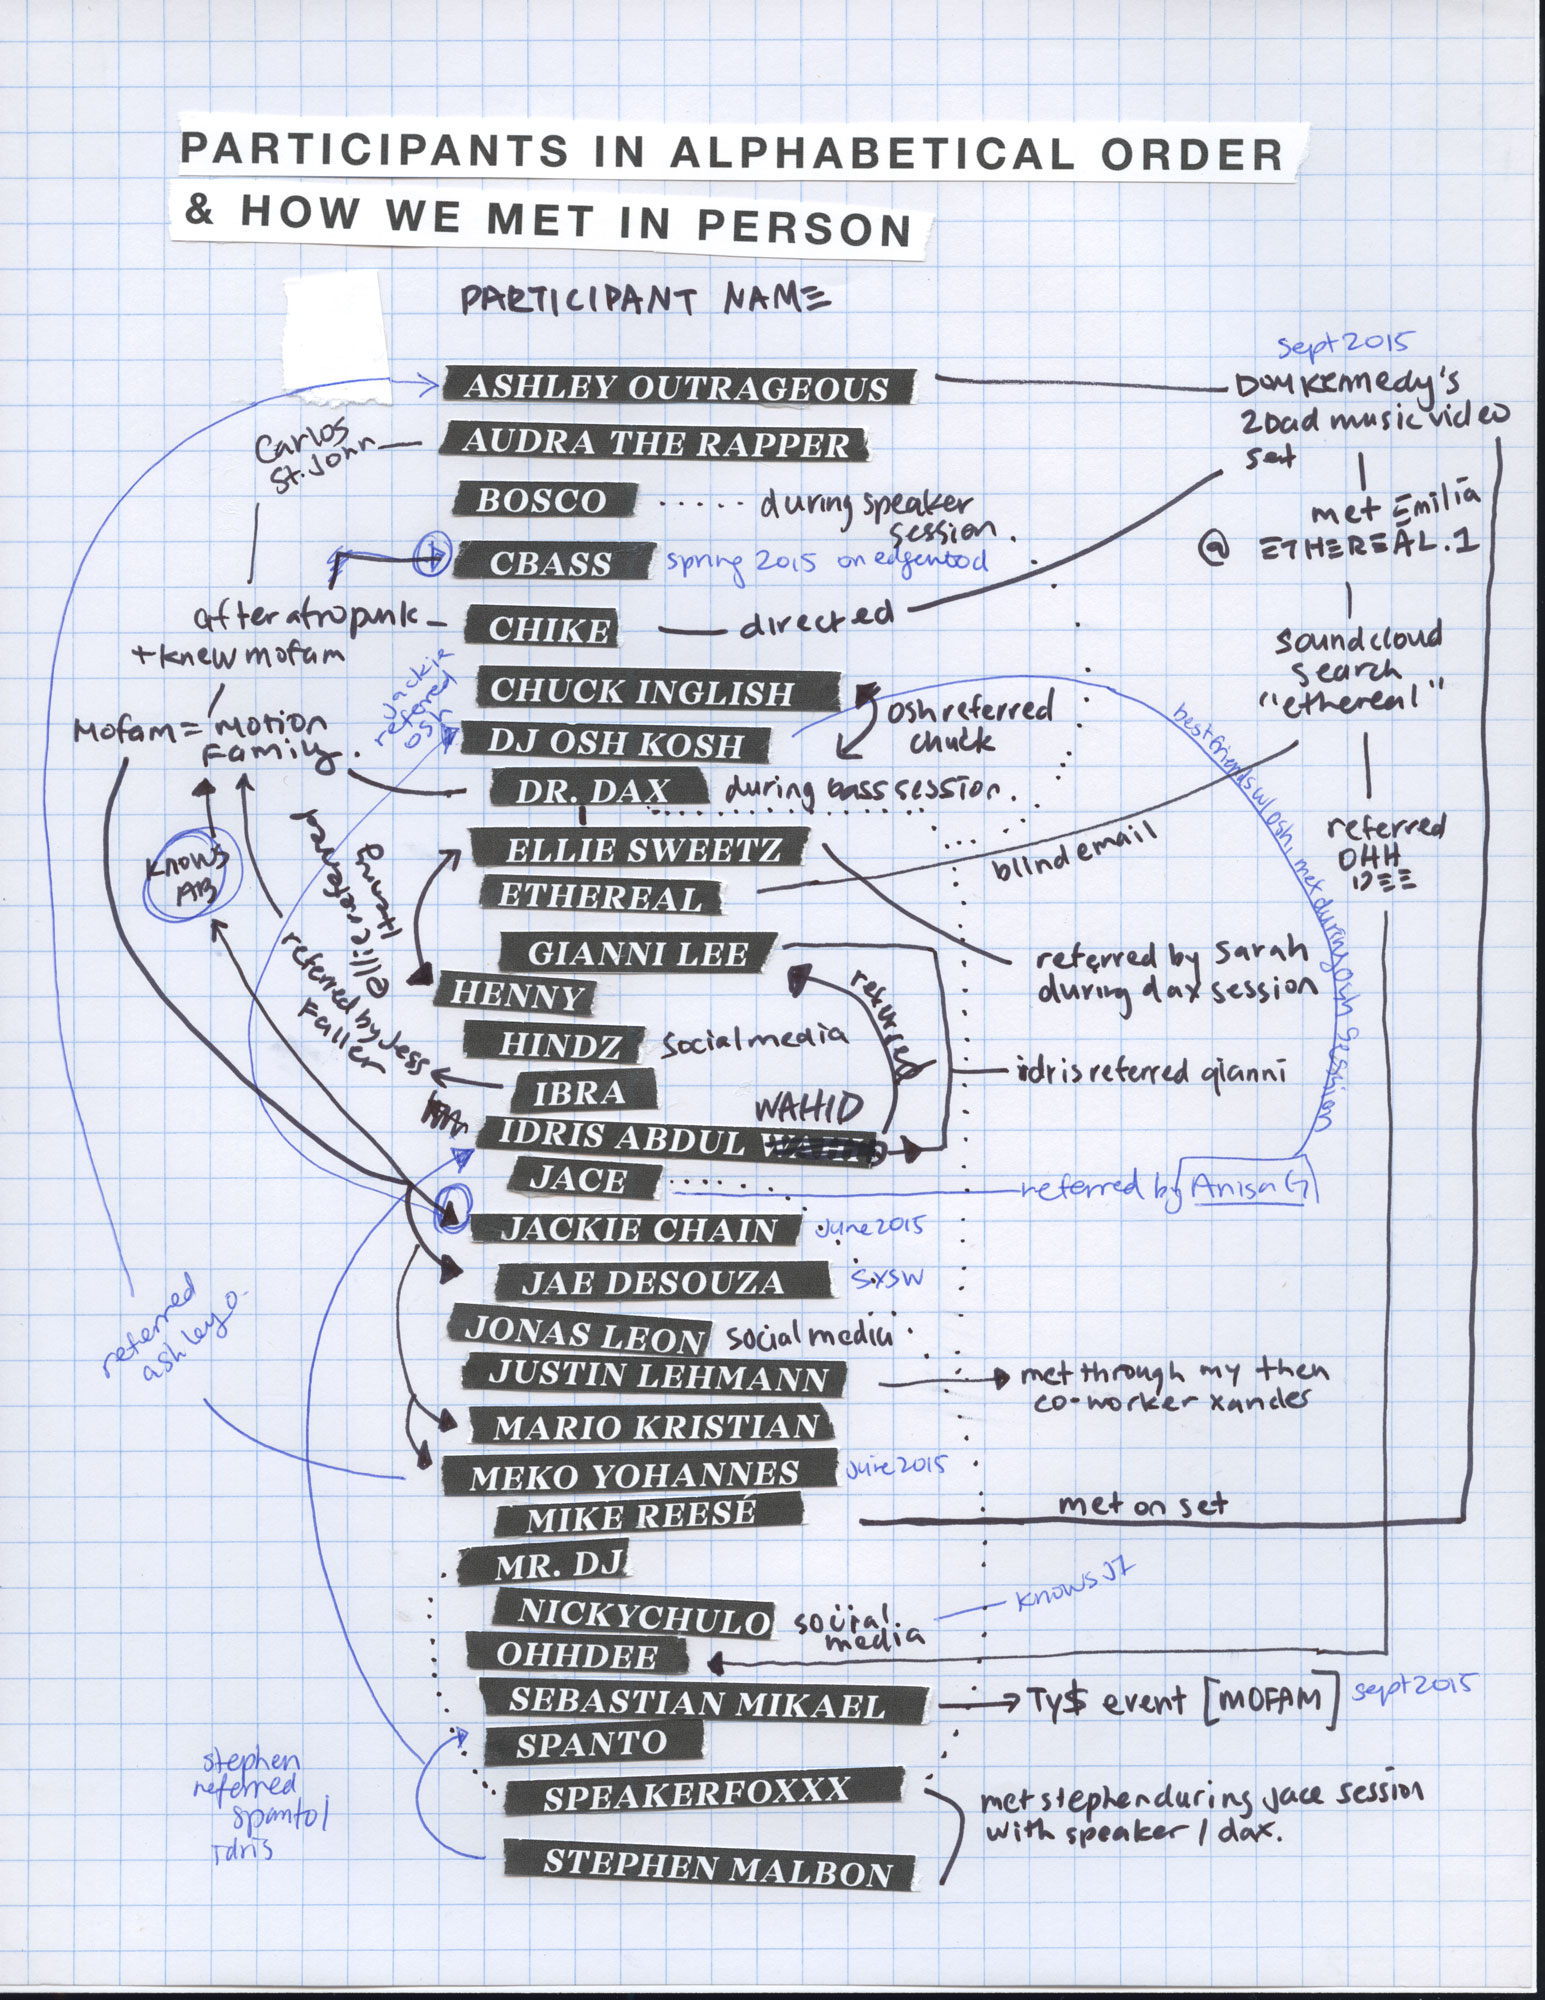 PARTICIPANTS IN ALPHABETICAL ORDER
& HOW WE MET IN PERSON
PARTICIPANT NAME
sept 2015
ASHLEY OUTRAGEOUS
DOM KENNEDY'S
2 bad music video
set
Carlos
St. John
AUDRA THE RAPPER
BOSCO
during speaker
session.
met Emilia
@ ETHEREAL.1
CBASS
spring 2015 on edgewood
after afropunk
+ knew mofam
CHIKE
directed
soundcloud
search
"ethereal"
Jackie
refered
osh
CHUCK INGLISH
osh referred
chuck
mofam = motion
Family.
DJ OSH KOSH
best friends w/ osh, met during osh session
DR. DAX
during bass session.
referred
OHH
DEE
knows
AB
ellie referred
Henny
ELLIE SWEETZ
blind email
ETHEREAL
referred by Jess
Faller
GIANNI LEE
referred by sarah
during dax session
HENNY
referred
HINDZ
social media
idris referred gianni
IBRA
WAHID
IDRIS ABDUL WAHID
JACE
referred by Anisa G
JACKIE CHAIN
June 2015
JAE DESOUZA
SXSW
referred
ashley o.
JONAS LEON
social media
JUSTIN LEHMANN
met through my then
co-worker xandes
MARIO KRISTIAN
MEKO YOHANNES
June 2015
MIKE REESÉ
met on set
MR. DJ
NICKYCHULO
social
media
knows J7
OHHDEE
SEBASTIAN MIKAEL
Ty$ event [MOFAM]
sept 2015
SPANTO
stephen
referred
spanto/
idris
SPEAKERFOXXX
met stephen during jace session
with speaker / dax.
STEPHEN MALBON